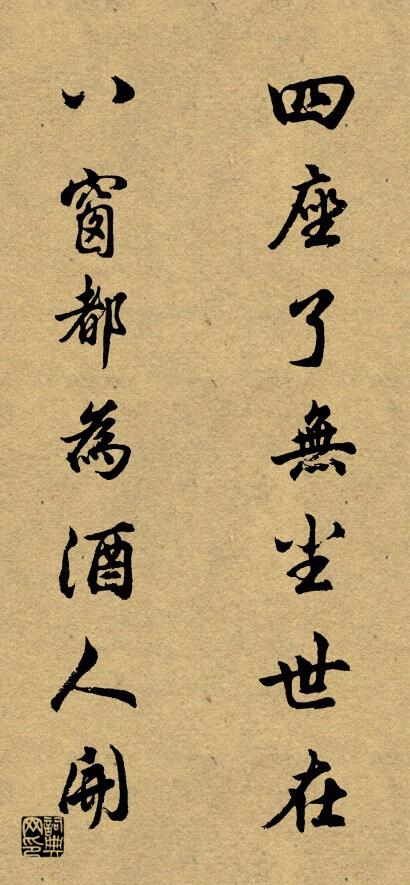 四座了無尘世在
八窗都為酒人開
詞典网印